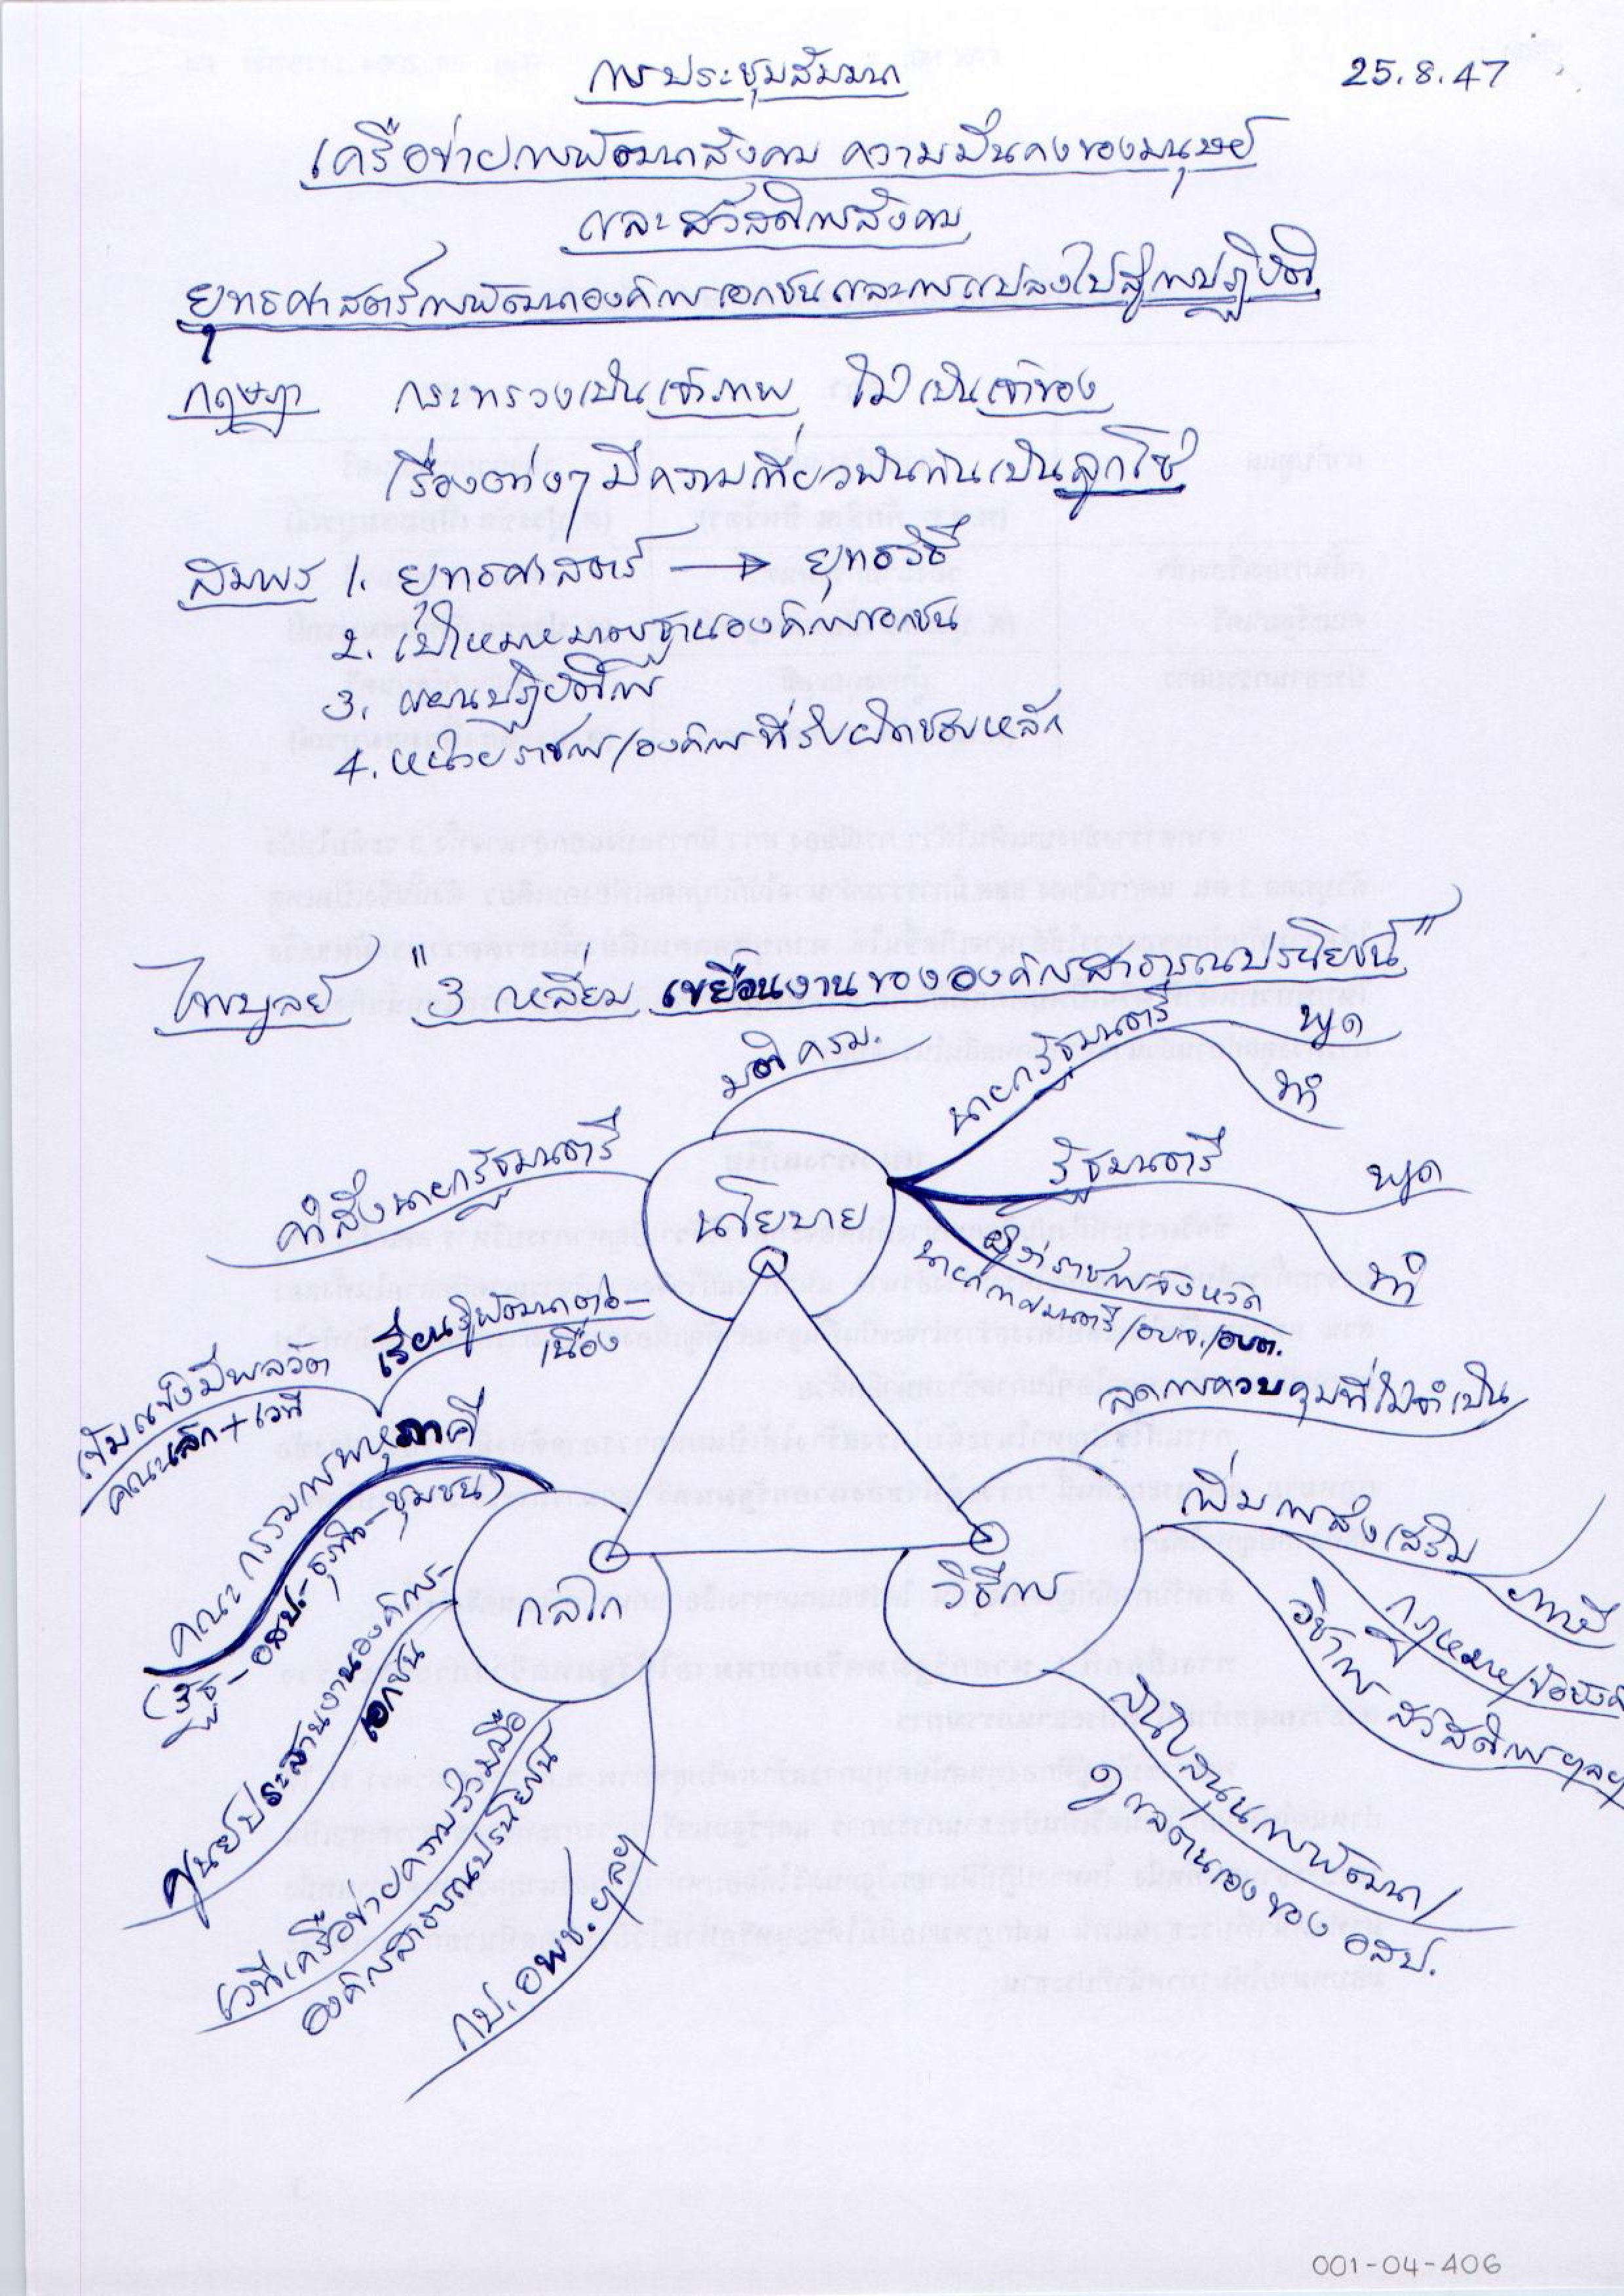 การประชุมสัมมนา
25.8.47
เครือข่ายการพัฒนาสังคม ความมั่นคงของมนุษย์
และสวัสดิการสังคม
ยุทธศาสตร์การพัฒนาองค์การเอกชนและการแปลงไปสู่การปฏิบัติ
กฤษฎา กระทรวงเป็นเจ้าภาพ ไม่เป็นเจ้าของ
เรื่องต่างๆ มีความเกี่ยวพันกันเป็นลูกโซ่
สมพร 1. ยุทธศาสตร์ → ยุทธวิธี
2. เป้าหมาย มาตรฐานองค์การเอกชน
3. แผนปฏิบัติการ
4. หน่วยราชการ/องค์การที่รับผิดชอบหลัก
ไพบูลย์ "3 เหลี่ยม เขยื้อนงานขององค์กรสาธารณประโยชน์"
มติ ครม.
นายกรัฐมนตรี
พูด
ทำ
คำสั่งนายกรัฐมนตรี
นโยบาย
รัฐมนตรี
พูด
ทำ
ผู้ว่าราชการจังหวัด
นายกเทศมนตรี/อบจ./อบต.
เรียนรู้พัฒนาต่อ-
เนื่อง
คณะเล็ก + เวที
คณะกรรมการพหุภาคี
(รัฐ-อสป.-ธุรกิจ-ชุมชน)
ลดการควบคุมที่ไม่จำเป็น
เพิ่มการส่งเสริม
ภาษี
กฎหมาย/ข้อบังคับ
วิชาการ สวัสดิการ ฯลฯ
กลไก
วิธีการ
ศูนย์ประสานงานองค์การ-
เอกชน
เวทีเครือข่ายความร่วมมือ
องค์กรสาธารณประโยชน์
กป.อพช. ฯลฯ
สนับสนุนการพัฒนา/
ดูแลตนเอง ของ อสป.
001-04-406